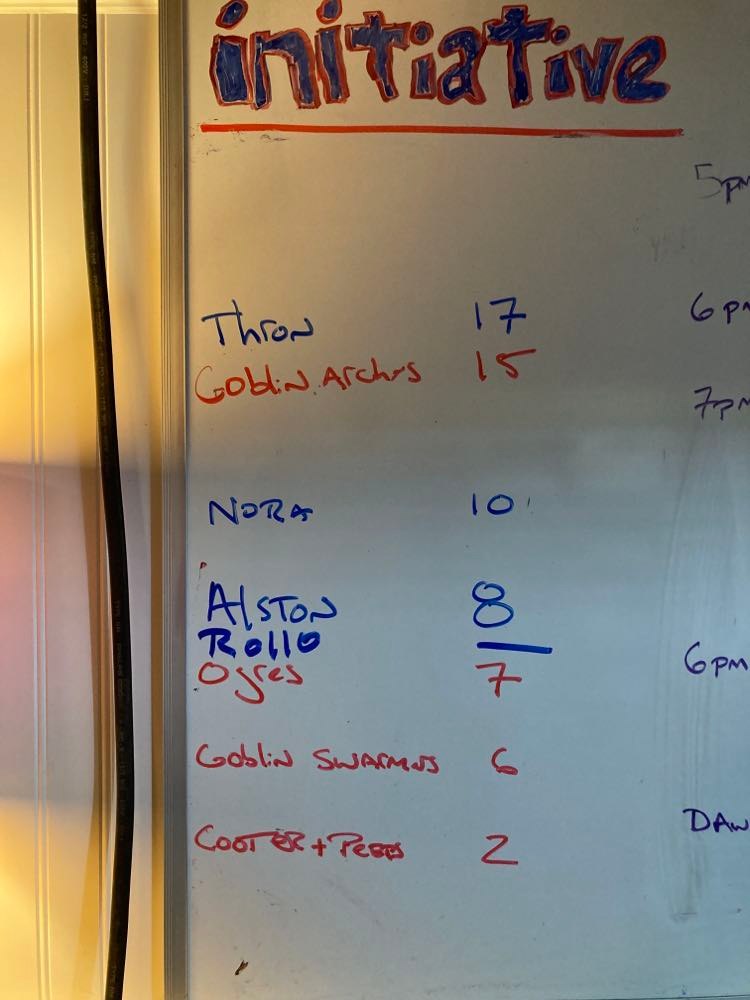 initiative
5pm
Thron 17
6pm
Goblin Archrs 15
7pm
Nora 10
Alston 8
Rollo
6pm
Ogres 7
Goblin Swarms 6
Daw
Cooter + 2